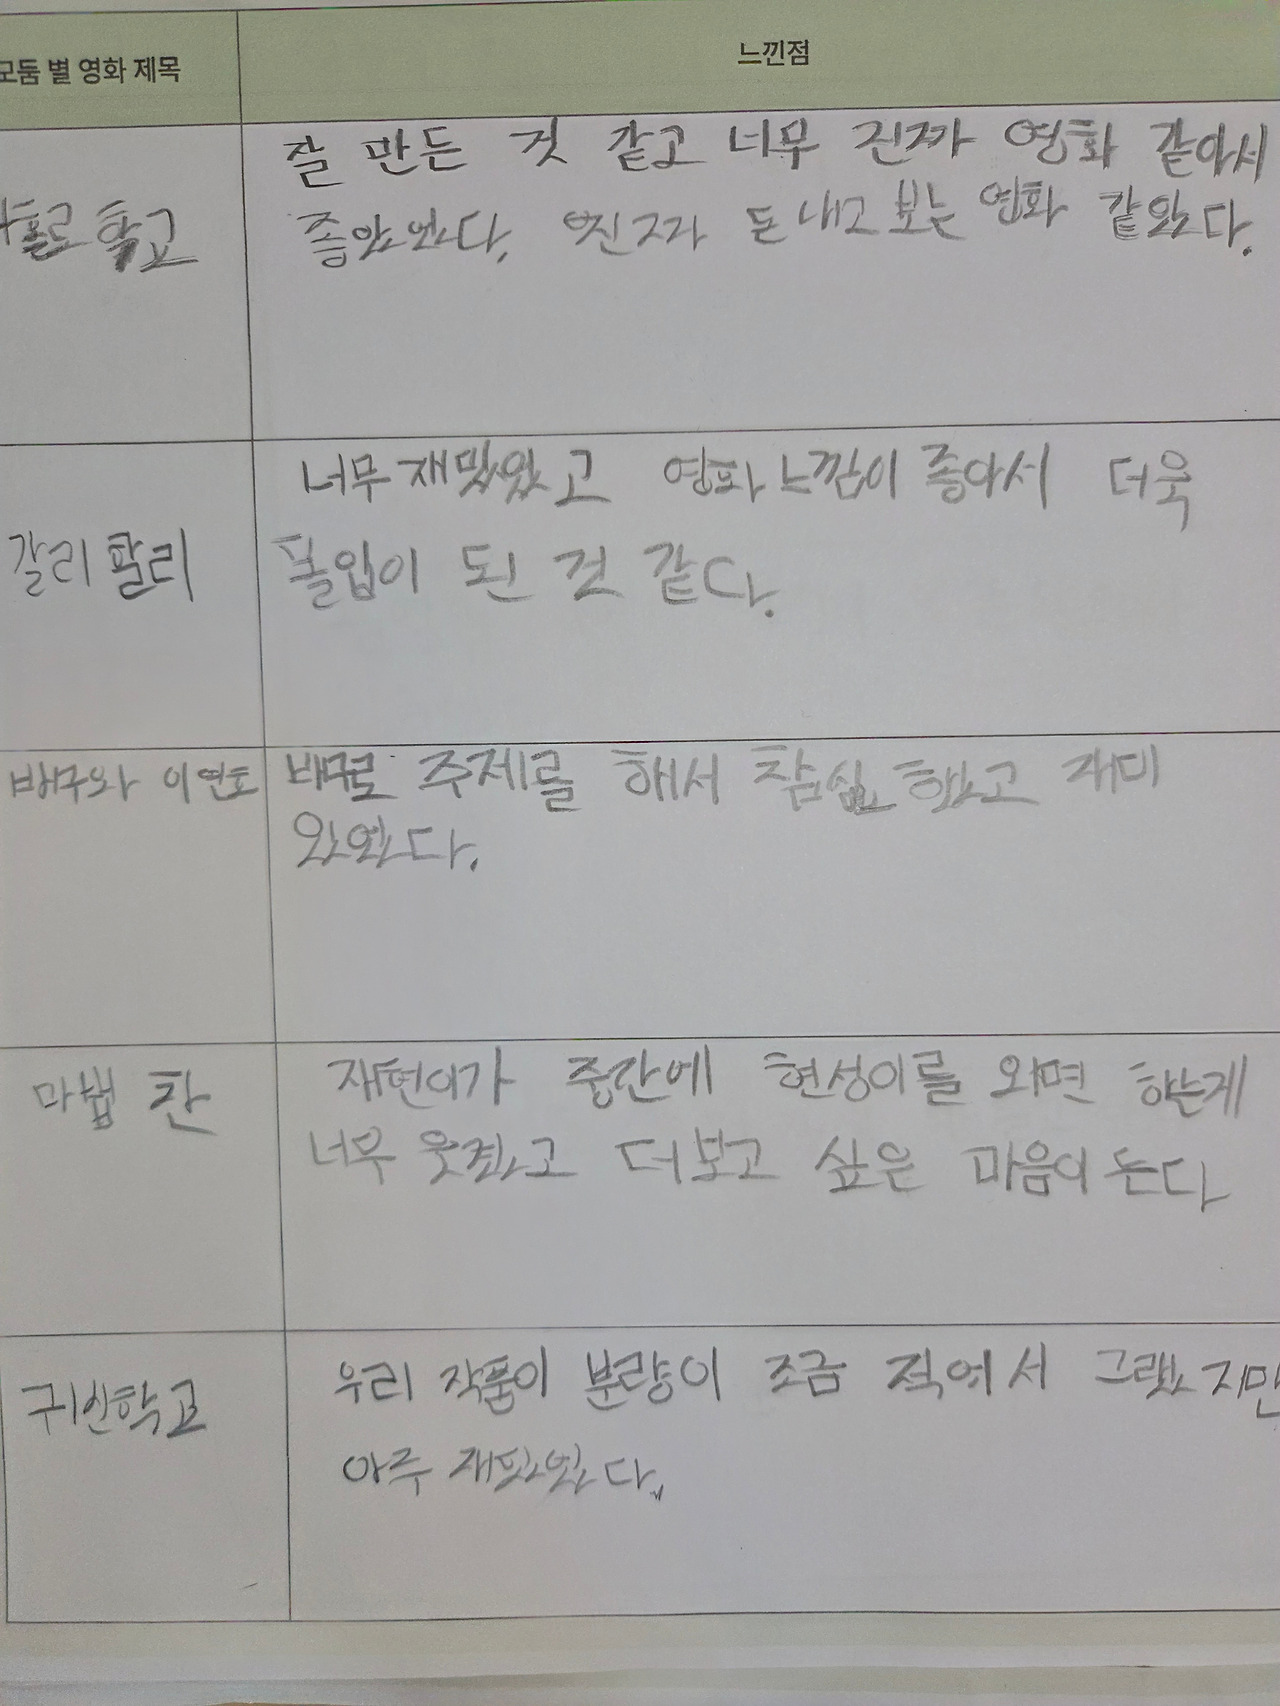 모둠 별 영화 제목
느낀점
잘 만든 것 같고 너무 진짜 영화 같아서
좋았었다. 찐짜 돈내고 보는 영화 같았다.
너무 재밌었고 영화 느낌이 좋아서 더욱
갈리팔리
몰입이 된 것 같다.
배구와 이연호
배구로 주제를 해서 참실했고 재미
있었다.
마법 찬
재현이가 중간에 현성이를 외면 하는게
너무 웃겼고 더보고 싶은 마음이 든다
귀신학교
우리 작품이 분량이 조금 적어서 그랬지만
아주 재밌었다.